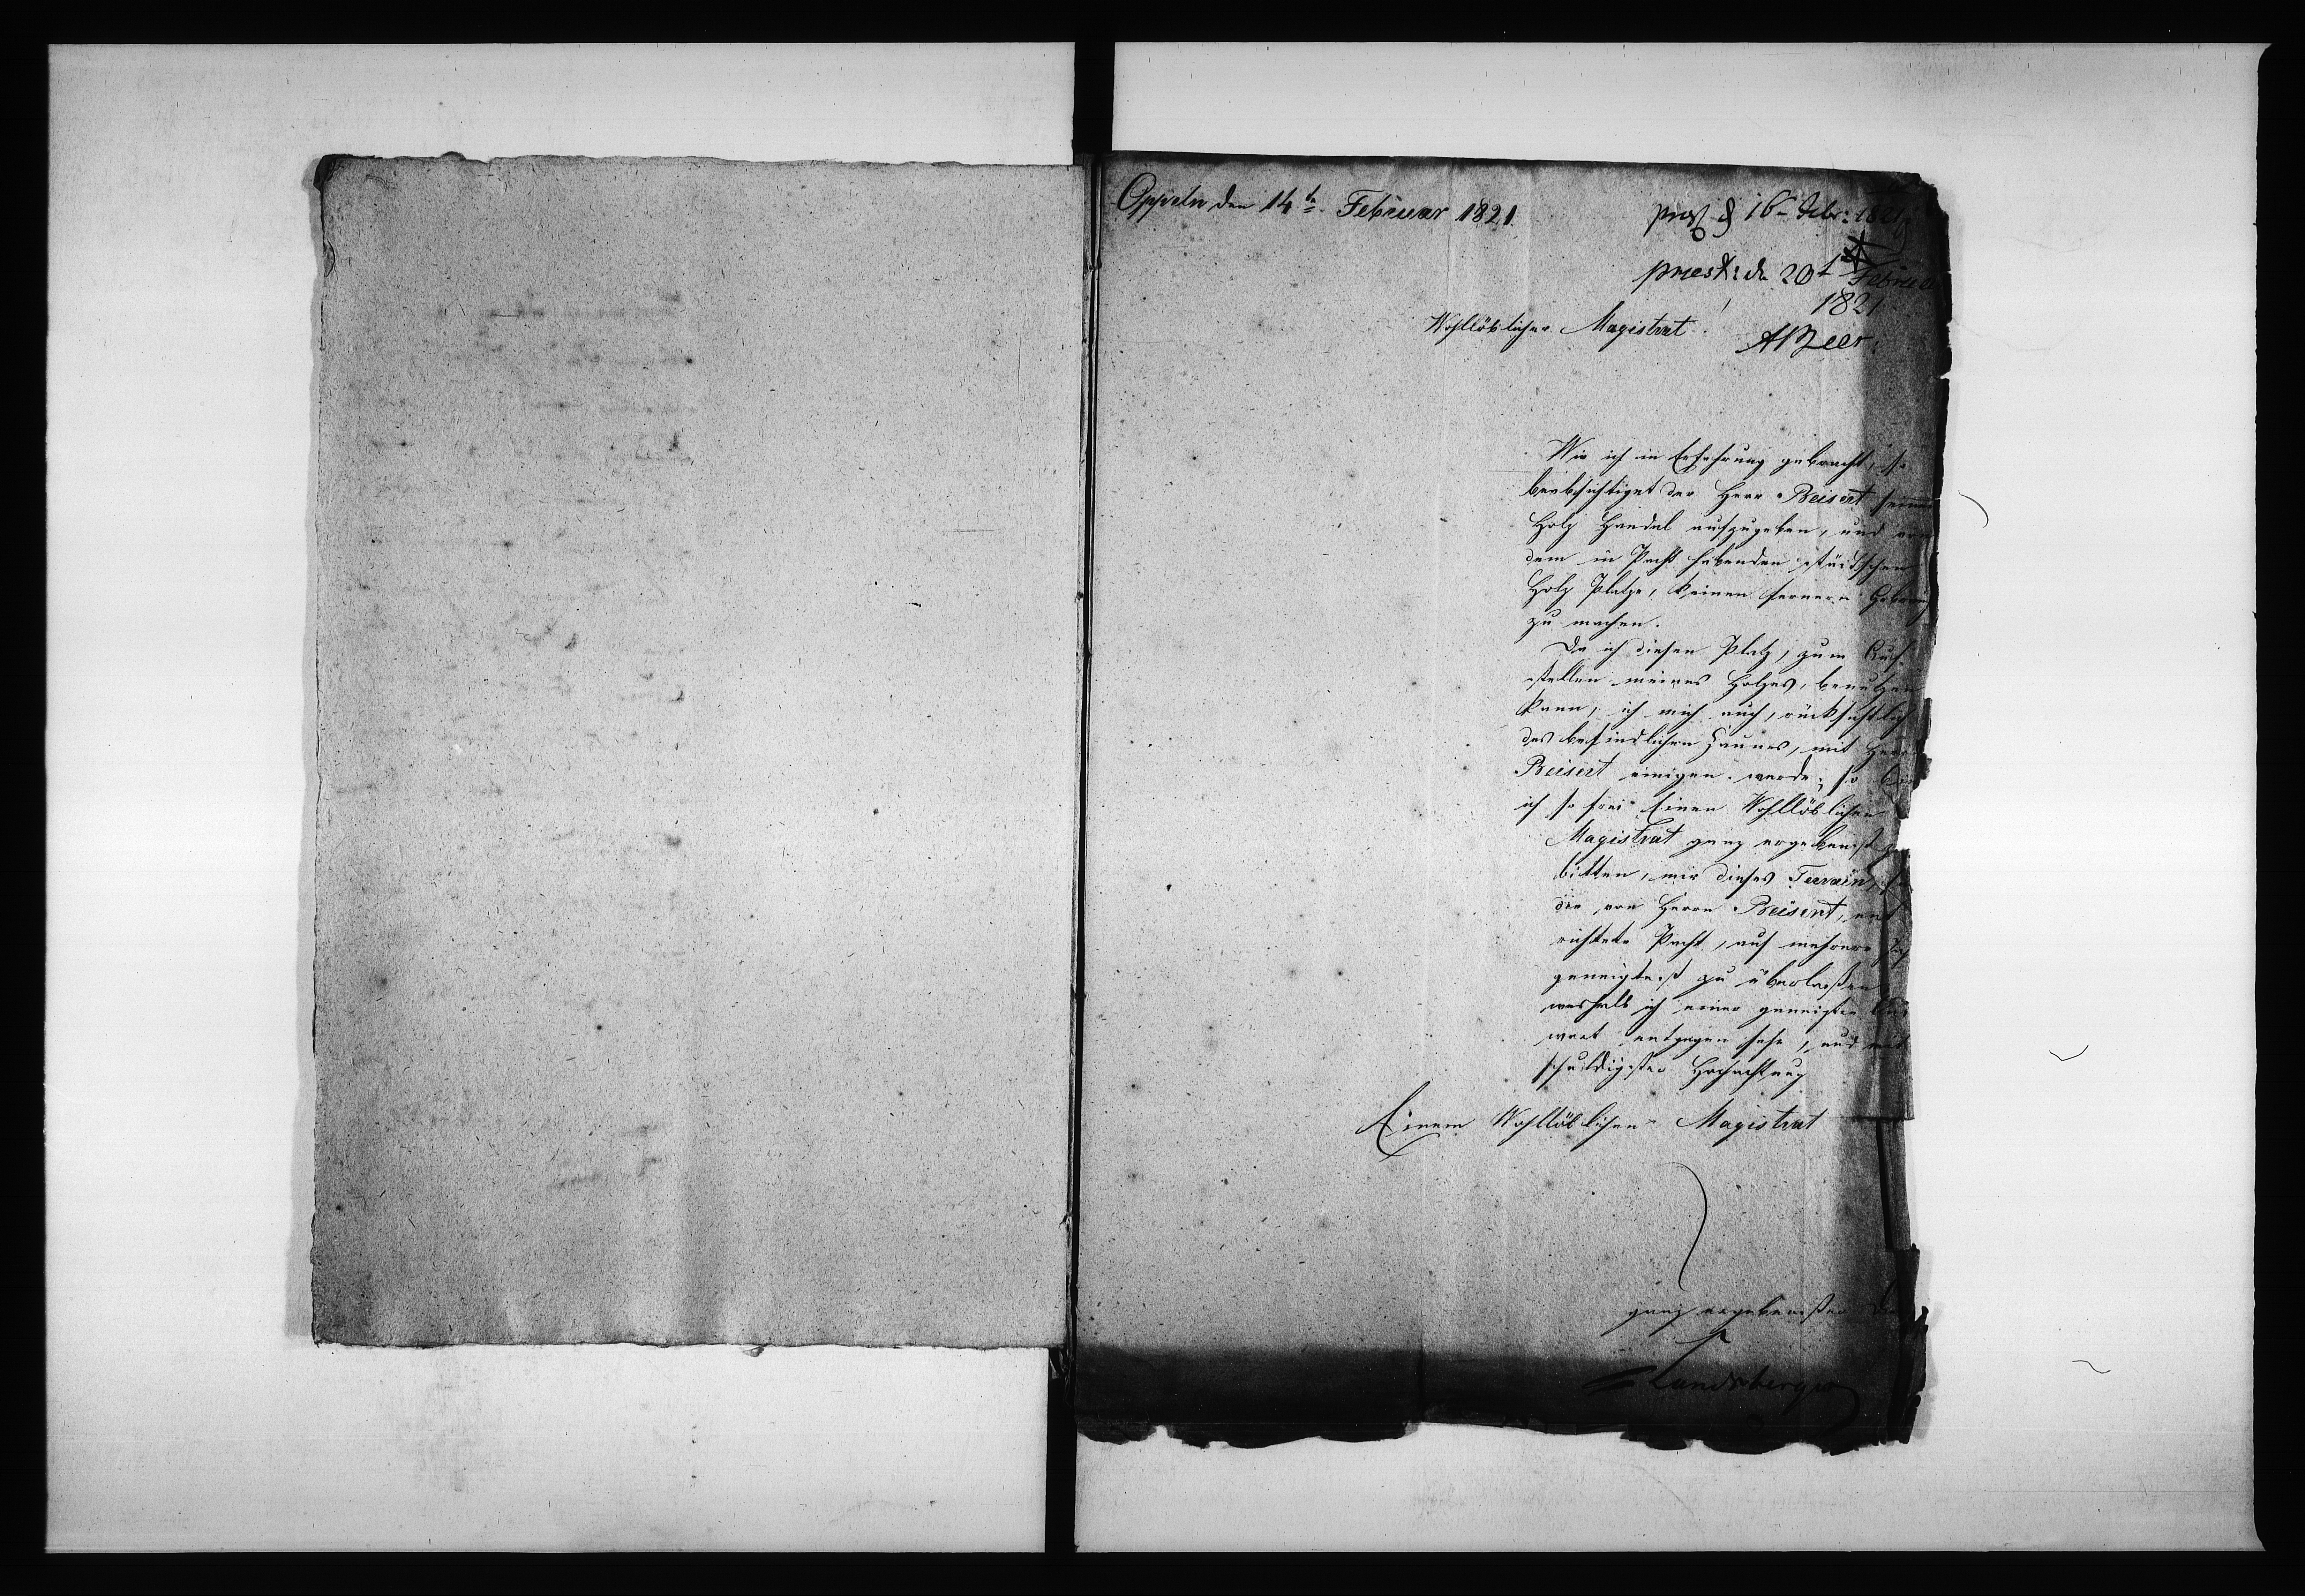 Oppeln den 14t. Februar 1821.
16 Febr: 1821
praest: d 20t Februar
1821
ABeer.
Wohllöblicher Magistrat!
Wie ich in Erfahrung gebracht, so
beabsichtiget der Herr Beisert seinen
Holz Handel aufzugeben, und von
dem in Pacht habenden städtschen
Holz Platze, keinen fernern Gebrauch
zu machen.
Da ich diesen Platz, zum Auf-
stellen meines Holzes, benutzen
kann, ich mich auch, rücksichtlich
des befindlichen Zaunes, mit Herrn
Beisert einigen werde; so bin
ich so frei Einen Wohllöblichen
Magistrat ganz ergebenst zu
bitten, mir dieses Terrain, für
die von Herrn Beisert, ent
richtete Pacht, auf mehrere Jah
geneigtest zu überlaßen
weshalb ich einer geneigten Ant
wort entgegen sehe, und mit
schuldigster Hochachtung
Einem Wohllöblichen Magistrat
ganz ergebenster
Landsberger